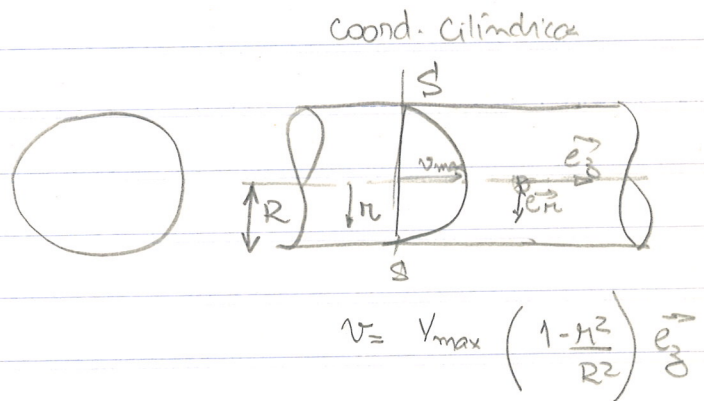 Coord. Cilíndricas
S
v_max
e_z
R
r
e_r
s
v = v_max (1 - r²/R²) e_z